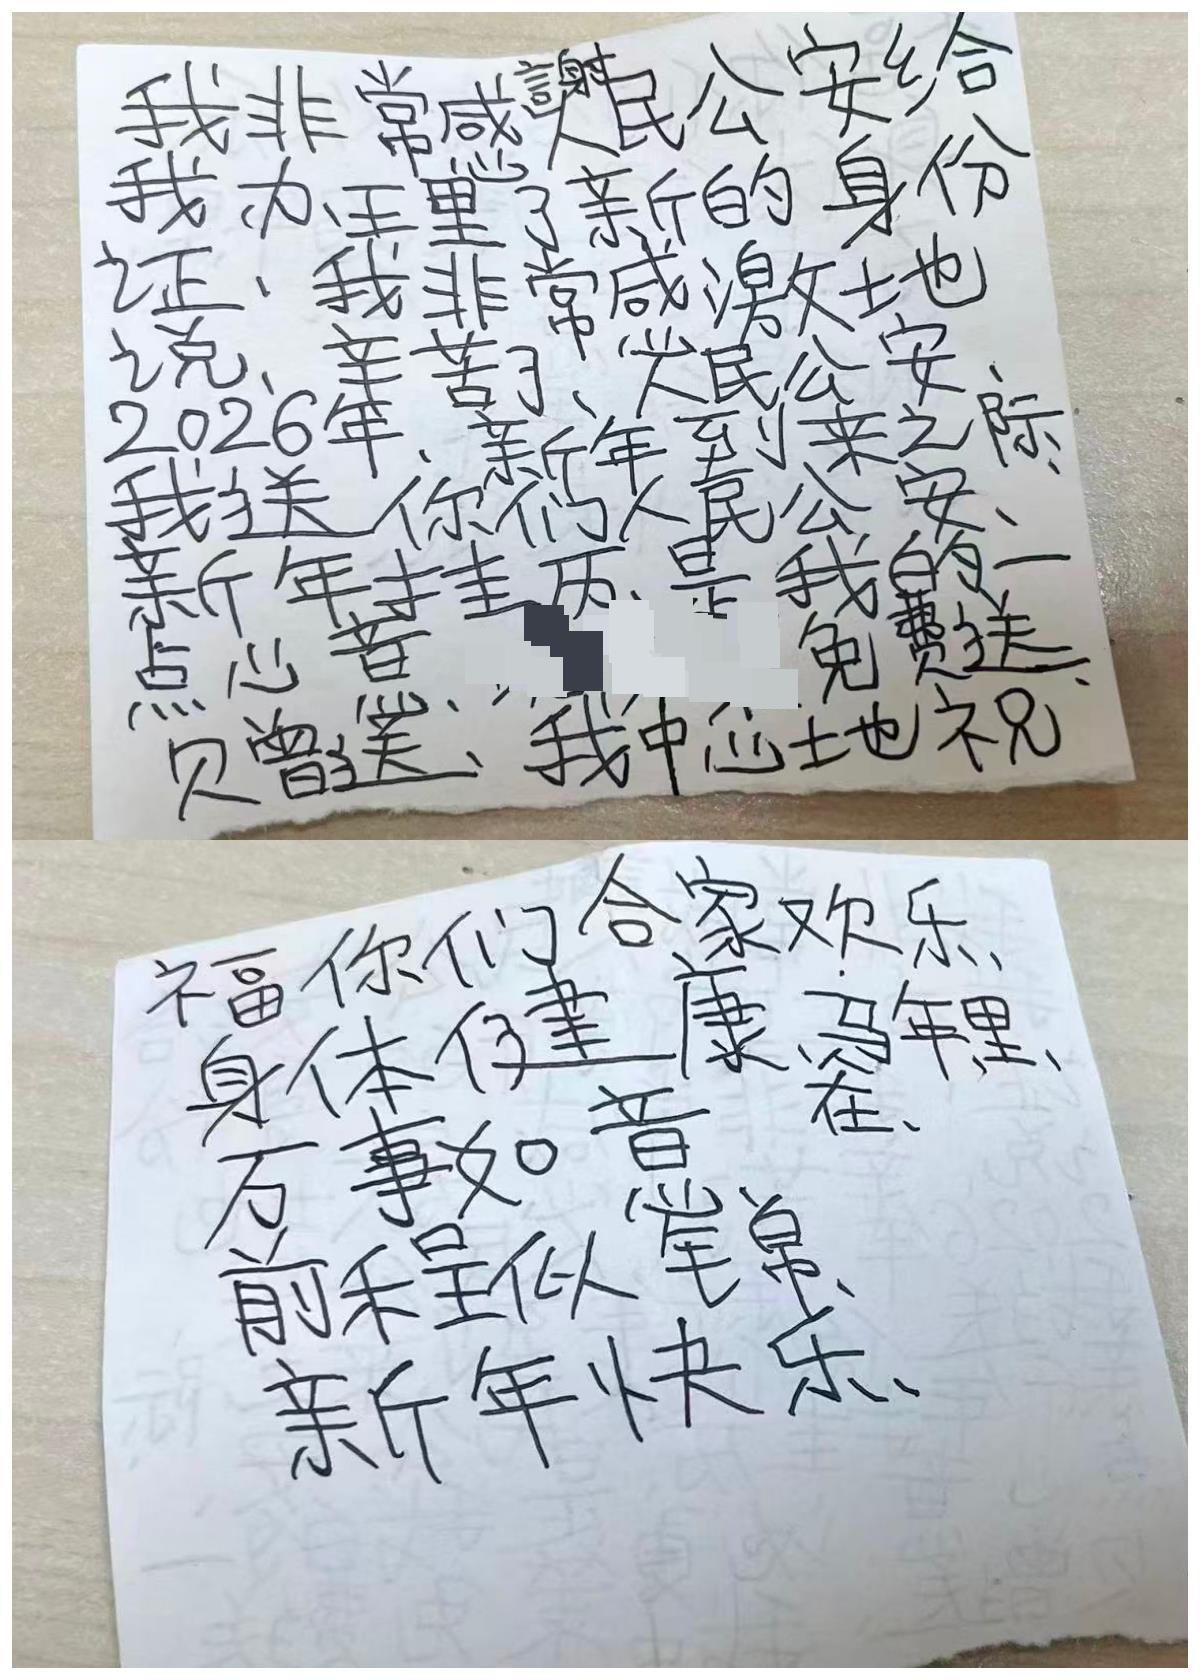 我非常感謝人民公安给
我办理了新的身份
证、我非常感激地
说、辛苦了、人民公安、
2026年、新年到来之际、
我送你们人民公安、
新年挂历、是我的一
点心意、免费送、
赠送、我衷心地祝
福你们合家欢乐、
身体健康、在马年里、
万事如意、
前程似锦、
新年快乐、